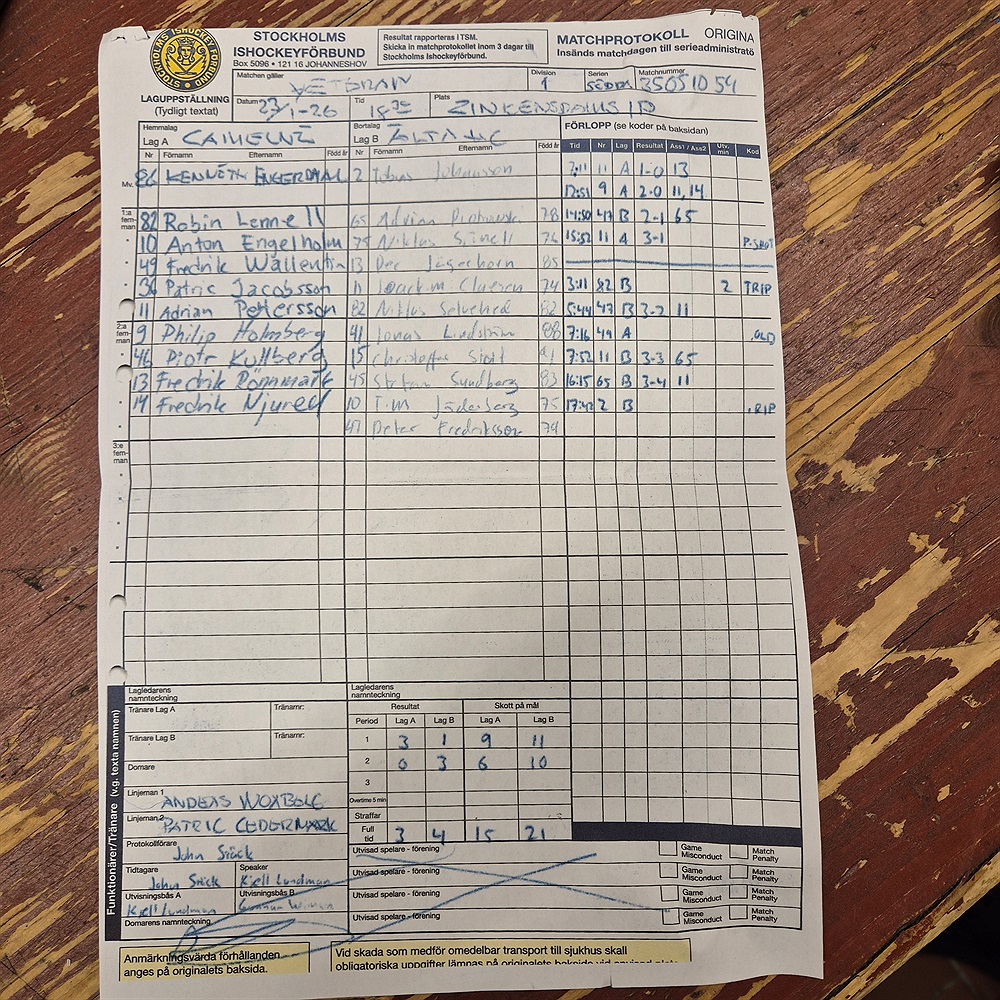 STOCKHOLMS ISHOCKEYFÖRBUND
STOCKHOLMS
ISHOCKEYFÖRBUND
Box 5096 • 121 16 JOHANNESHOV
Resultat rapporteras i TSM.
Skicka in matchprotokollet inom 3 dagar till
Stockholms Ishockeyförbund.
MATCHPROTOKOLL ORIGINA
Insänds matchdagen till serieadministratö
LAGUPPSTÄLLNING
(Tydligt textat)
Matchen gäller VETERAN Division 1 Serien SÖDRA Matchnummer 35051054
Datum 23/1-26 Tid 18 Plats ZINKENSDAMS IP
Hemmalag Lag A Bortalag Lag B ÄLTA
FÖRLOPP (se koder på baksidan)
Nr Förnamn Efternamn Född år Nr Förnamn Efternamn Född år Tid Nr Lag Resultat Ass1 / Ass2 Utv. min Kod
Mv. 86 KENNETH 2 Tobias Johansson 7:11 11 A 1-0 13
17:51 9 A 2-0 11,14
1:a fem-man 82 Robin Lennell 65 Adrian 78 14:50 47 B 2-1 65
10 Anton Engelholm 75 Niklas 76 15:52 11 A 3-1 P.SHOT
49 Fredrik Wallentin 13 Per Jägerhorn 85
36 Patric Jacobsson 11 Joackim 74 3:11 82 B 2 TRIP
11 Adrian Pettersson 82 Niklas 82 5:44 47 B 3-2 11
2:a fem-man 9 Philip Holmberg 41 Jonas Lindström 88 7:16 49 A
46 Piotr Kullberg 15 Christoffer 7:52 11 B 3-3 65
13 Fredrik Rönnmark 45 Stefan Sundberg 83 16:15 65 B 3-4 11
14 Fredrik Njurell 10 Tim Jäderberg 75 17:42 2 B
47 Peter Fredriksson 74
3:e fem-man
Funktionärer/Tränare (v.g. texta namnen)
Lagledarens namnteckning
Lagledarens namnteckning
Tränare Lag A Tränarnr:
Tränare Lag B Tränarnr:
Resultat Skott på mål
Period Lag A Lag B Lag A Lag B
1 3 1 9 11
2 0 3 6 10
3
Overtime 5 min
Straffar
Full tid 3 4 15 21
Domare
Linjeman 1
Linjeman 2 PATRIC CEDERMARK
Protokollförare John
Tidtagare John Speaker Kjell Lundman
Utvisningsbås A Kjell Lundman Utvisningsbås B Gunnar
Domarens namnteckning
Utvisad spelare - förening Game Misconduct Match Penalty
Utvisad spelare - förening Game Misconduct Match Penalty
Utvisad spelare - förening Game Misconduct Match Penalty
Utvisad spelare - förening Game Misconduct Match Penalty
Anmärkningsvärda förhållanden
anges på originalets baksida.
Vid skada som medför omedelbar transport till sjukhus skall
obligatoriska uppgifter lämnas på originalets baksida